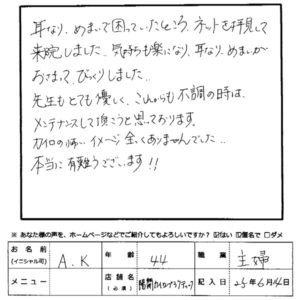 耳なり、めまいで困っていたところ、ネットを拝見して
来院しました。気持ちも楽になり、耳なり、めまいが
おさまって、びっくりしました。
先生もとても優しく、これからも不調の時は、
メンテナンスして頂こうと思っております。
カイロの怖いイメージ全くありませんでした。
本当に有難うございます!!
※ あなた様の声を、ホームページなどでご紹介してもよろしいですか? ☑はい □匿名で □ダメ
お名前 (イニシャル可) A.K 年齢 44 職業 主婦
メニュー 店舗名 (必須) カイロプラクティック 記入日 25年6月14日